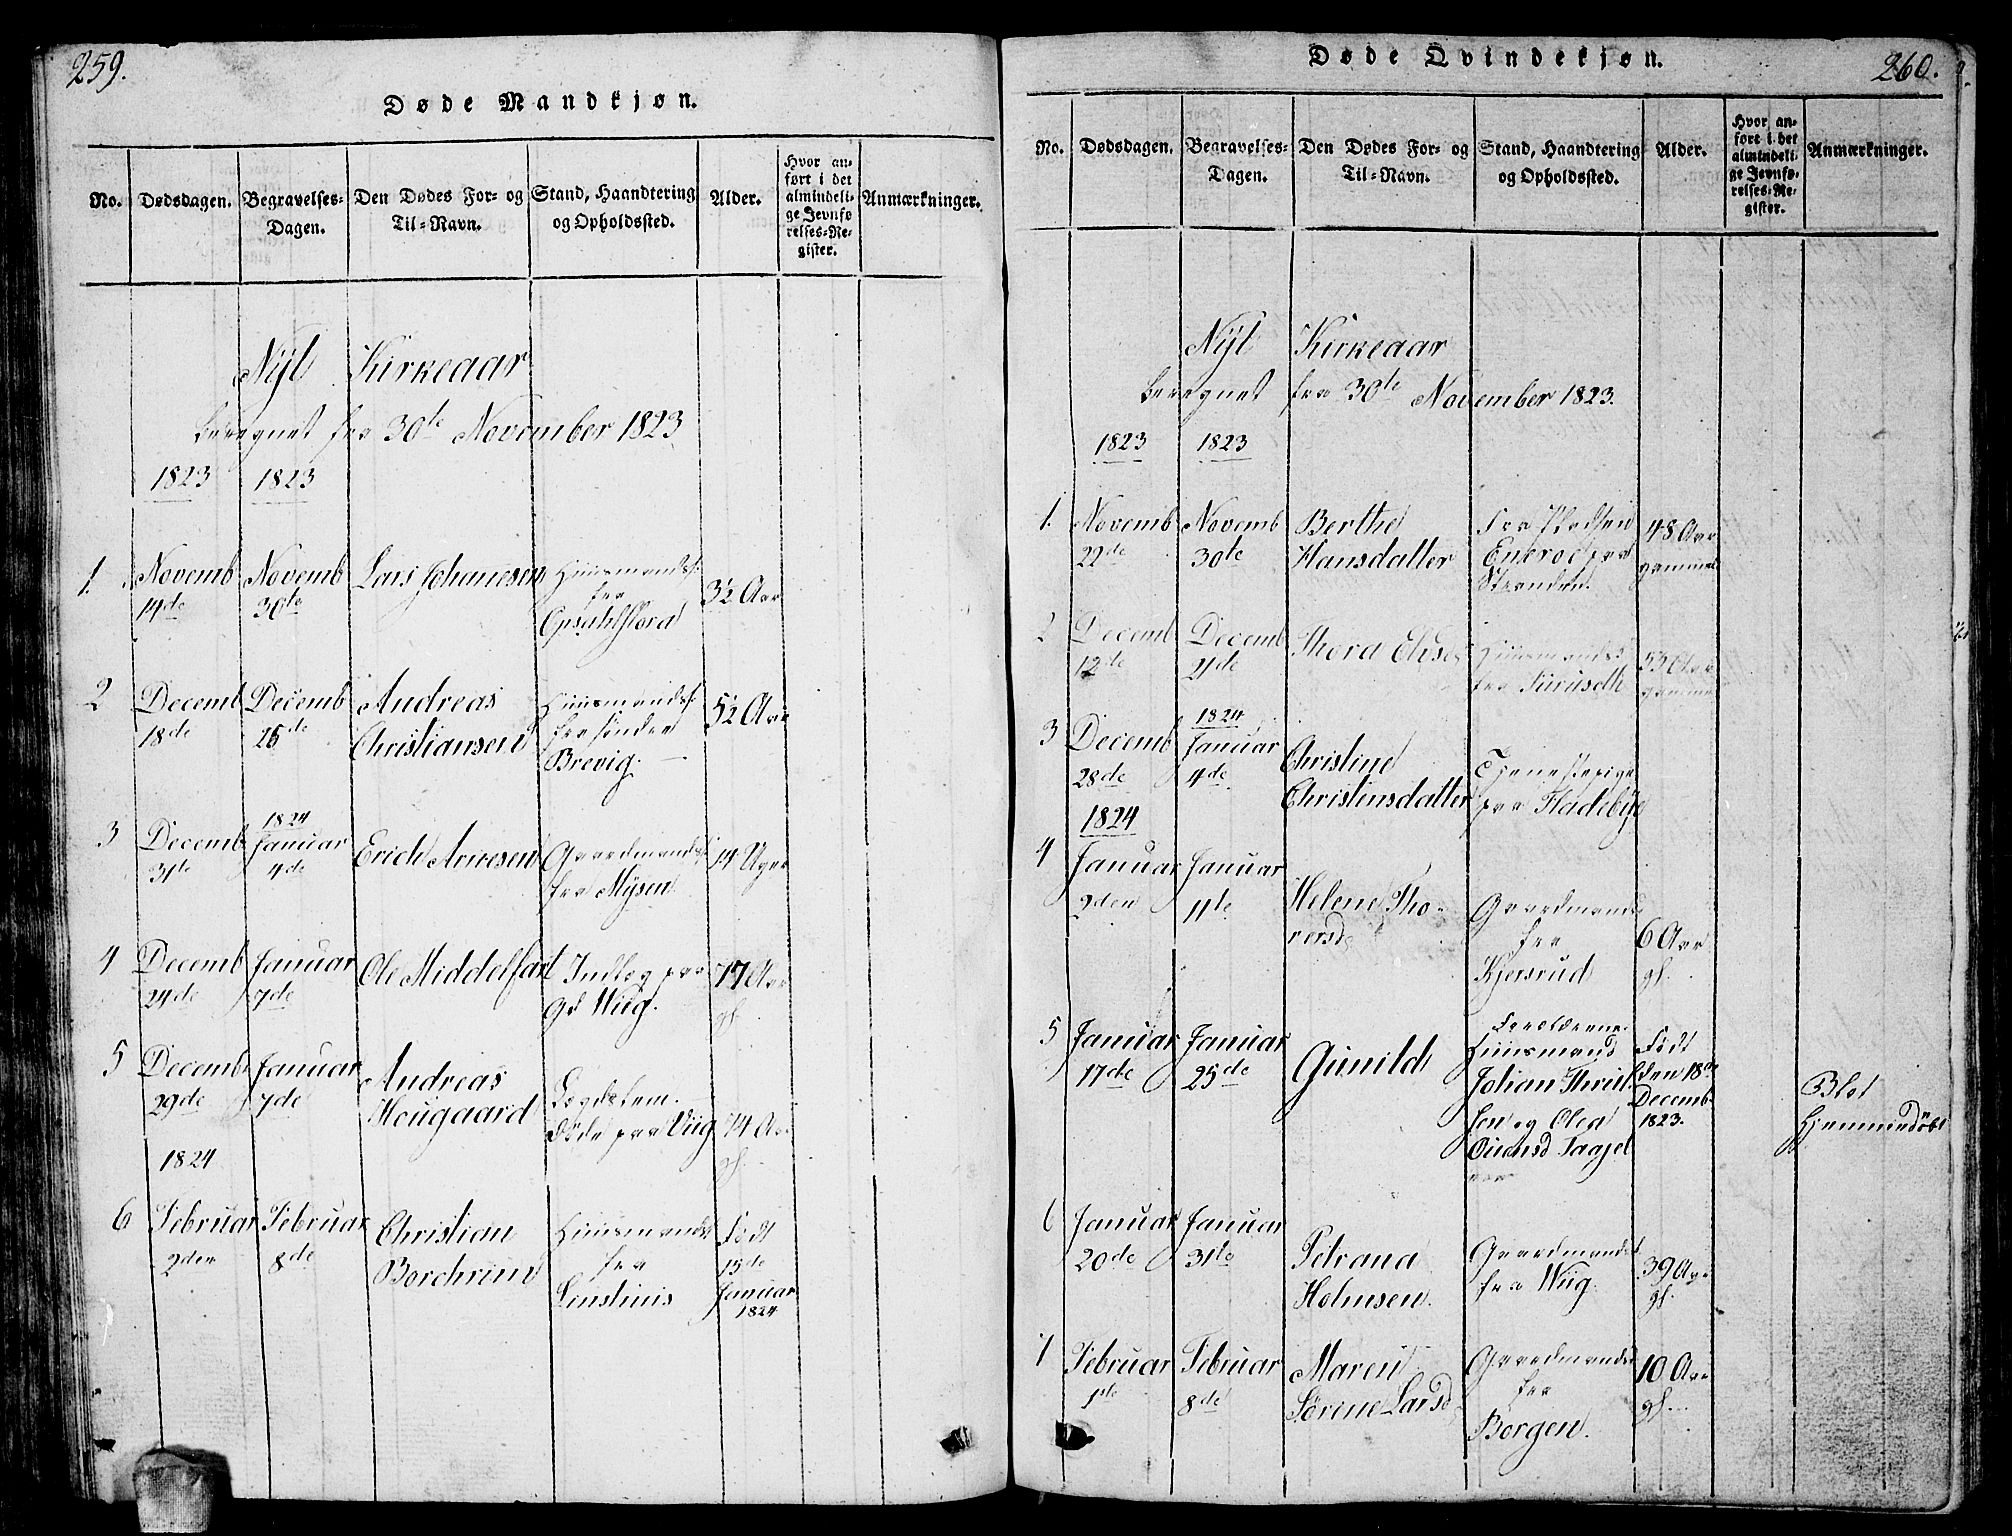 259.
Døde Mandkjøn.
No. Dødsdagen. Begravelses-Dagen. Den Dødes For- og Til-Navn. Stand, Haandtering og Opholdssted. Alder. Hvor anført i det almindelige Jevnførelses-Register. Anmærkninger.
Nyt Kirkeaar
beregnet fra 30te November 1823
1823 1823
1. Novemb Novemb Lars Johanesen Huusmands
14de 30te fra 32 Aar
2 Decemb Decemb Andreas Huusmands 52 Aar
18de 26de Christiansen fra søndre
Brevig.
1824
3 Decemb Januar Erich Arnesen Gaardmands 14 Uger
31te 4de fra Mysen
4 Decemb Januar Ole Middelfart Indlæg paa 77 Aar
24de 7de Wiig. gl.
5 Decemb Januar Andreas Lægdslem
29de 7de Hougaard Døde paa Viig 74 Aar
gl.
1824
6 Februar Februar Christian Huusmands Født
2den 8de fra
Januar
1824
260.
Døde Qvindekjøn.
No. Dødsdagen. Begravelses-Dagen. Den Dødes For- og Til-Navn. Stand, Haandtering og Opholdssted. Alder. Hvor anført i det almindelige Jevnførelses-Register. Anmærkninger.
Nyt Kirkeaar
beregnet fra 30te November 1823.
1823 1823
1. Novemb Novemb Berthe Fra Pladsen 48 Aar
22de 30te Hansdatter gammel
Stranden.
2 Decemb Decemb Thora Huusmands 53 Aar
12de 21de fra Furuseth gammel
1824
3 Decemb Januar Christine Tjenestepige
28de 4de Christiansdatter paa Fladebye
1824
4 Januar Januar Helene Tho- Gaardmands
2den 11te rersd fra 6 Aar
Kjersrud gl.
5 Januar Januar Gunild Forældrene Født
17de 25de Huusmand den 18de
Johan Decemb
og Olea 1823.
Blot
hjemmedøbt
6 Januar Januar Petrana Gaardmands
20de 31te Holmsen. fra Wiig. 39 Aar
gl.
7 Februar Februar Maren Gaardmands 10 Aar
1te 8de Sørine Larsd fra gl.
Borgen.